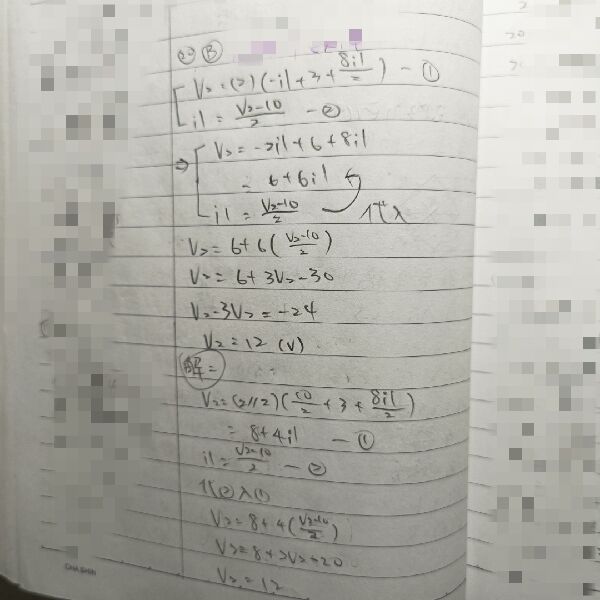 B
V₂=(2)(-i1+3+8i1/2) —①
i1 = V₂-10/2 —②
⇒ V₂=-2i1+6+8i1
= 6+6i1
i1 = V₂-10/2 代入
V₂=6+6(V₂-10/2)
V₂= 6+3V₂-30
V₂-3V₂=-24
V₂=12 (V)
解二
V₂=(2//2)(10/2+3+8i1/2)
= 8+4i1 —①
i1=V₂-10/2 —②
代②入①
V₂=8+4(V₂-10/2)
V₂=8+2V₂-20
V₂=12